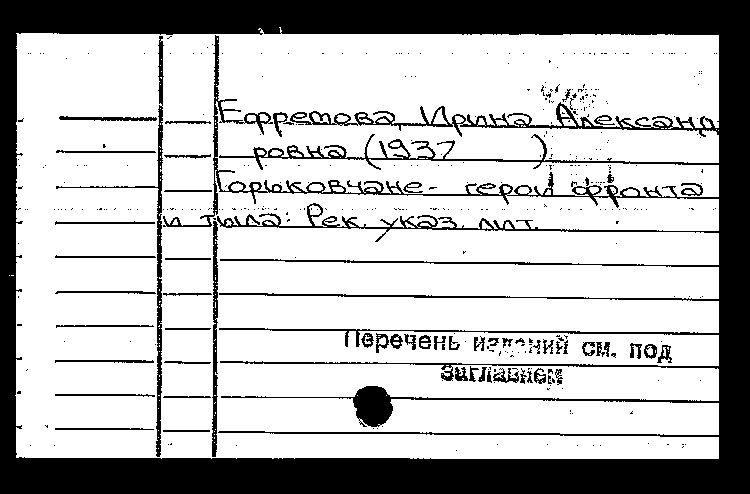 Ефремова, Ирина Александ
ровна (1937 )
Горьковчане - герои фронта
и тыла: Рек. указ. лит.
Перечень изданий см. под
заглавием